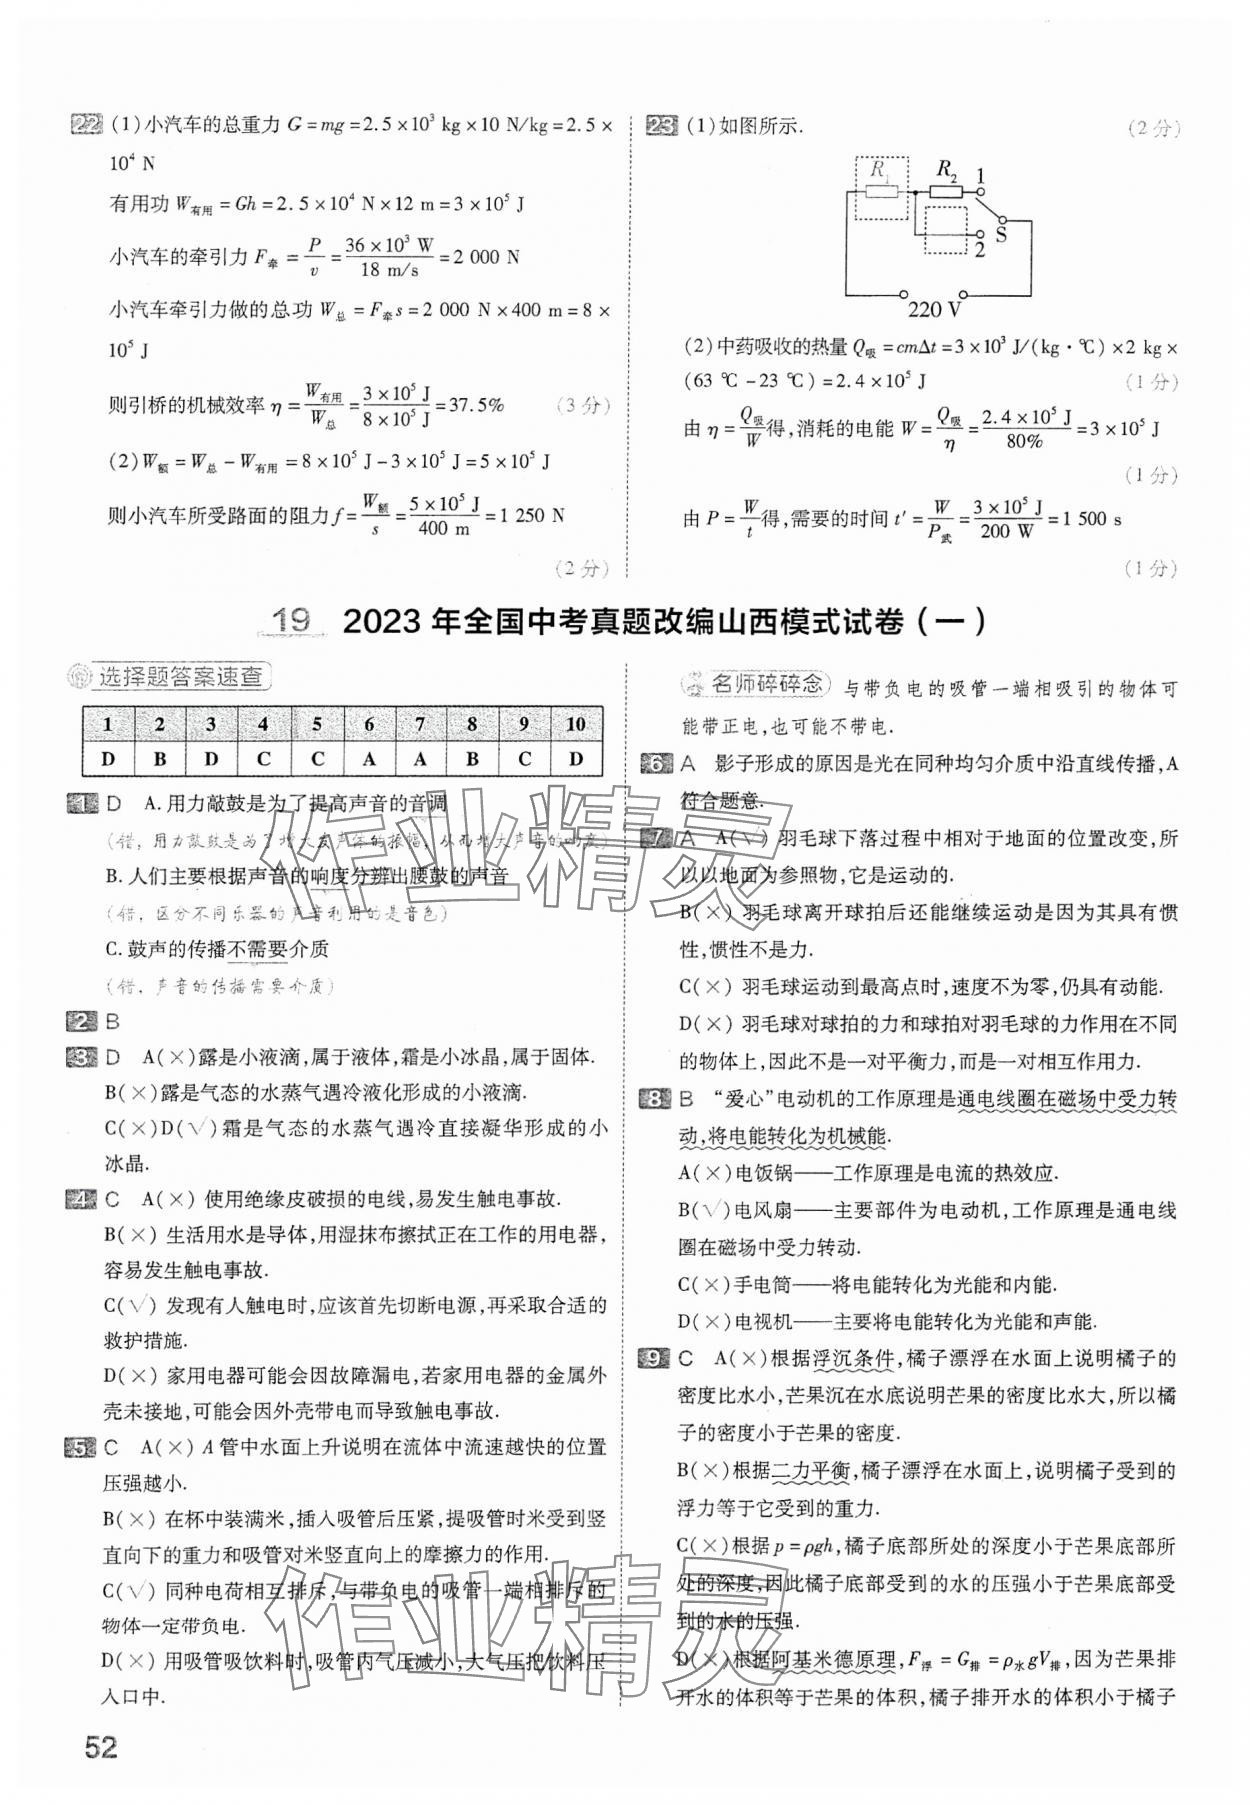 22 (1)小汽车的总重力 G=mg=2.5×10³ kg×10 N/kg=2.5×
10⁴ N
有用功 W有用=Gh=2.5×10⁴ N×12 m=3×10⁵ J
小汽车的牵引力 F牵=P/v=36×10³ W/18 m/s=2 000 N
小汽车牵引力做的总功 W总=F牵s=2 000 N×400 m=8×
10⁵ J
则引桥的机械效率 η=W有用/W总=3×10⁵ J/8×10⁵ J=37.5% (3分)
(2)W额=W总-W有用=8×10⁵ J-3×10⁵ J=5×10⁵ J
则小汽车所受路面的阻力 f=W额/s=5×10⁵ J/400 m=1 250 N
(2分)
23 (1)如图所示. (2分)
R₁ R₂ 1
S
2
220 V
(2)中药吸收的热量 Q吸=cmΔt=3×10³ J/(kg·℃)×2 kg×
(63 ℃-23 ℃)=2.4×10⁵ J (1分)
由 η=Q吸/W得,消耗的电能 W=Q吸/η=2.4×10⁵ J/80%=3×10⁵ J
(1分)
由 P=W/t得,需要的时间 t′=W/P武=3×10⁵ J/200 W=1 500 s
(1分)
19 2023年全国中考真题改编山西模式试卷(一)
选择题答案速查
1 2 3 4 5 6 7 8 9 10
D B D C C A A B C D
1 D A.用力敲鼓是为了提高声音的音调
(错，用力敲鼓是为了增大发声体的振幅，从而增大声音的响度)
B.人们主要根据声音的响度分辨出腰鼓的声音
(错，区分不同乐器的声音利用的是音色)
C.鼓声的传播不需要介质
(错，声音的传播需要介质)
2 B
3 D A(×)露是小液滴,属于液体,霜是小冰晶,属于固体.
B(×)露是气态的水蒸气遇冷液化形成的小液滴.
C(×)D(√)霜是气态的水蒸气遇冷直接凝华形成的小
冰晶.
4 C A(×)使用绝缘皮破损的电线,易发生触电事故.
B(×)生活用水是导体,用湿抹布擦拭正在工作的用电器,
容易发生触电事故.
C(√)发现有人触电时,应该首先切断电源,再采取合适的
救护措施.
D(×)家用电器可能会因故障漏电,若家用电器的金属外
壳未接地,可能会因外壳带电而导致触电事故.
5 C A(×)A管中水面上升说明在流体中流速越快的位置
压强越小.
B(×)在杯中装满米,插入吸管后压紧,提吸管时米受到竖
直向下的重力和吸管对米竖直向上的摩擦力的作用.
C(√)同种电荷相互排斥,与带负电的吸管一端相排斥的
物体一定带负电.
D(×)用吸管吸饮料时,吸管内气压减小,大气压把饮料压
入口中.
名师碎碎念 与带负电的吸管一端相吸引的物体可
能带正电,也可能不带电.
6 A 影子形成的原因是光在同种均匀介质中沿直线传播,A
符合题意.
7 A A(√)羽毛球下落过程中相对于地面的位置改变,所
以以地面为参照物,它是运动的.
B(×)羽毛球离开球拍后还能继续运动是因为其具有惯
性,惯性不是力.
C(×)羽毛球运动到最高点时,速度不为零,仍具有动能.
D(×)羽毛球对球拍的力和球拍对羽毛球的力作用在不同
的物体上,因此不是一对平衡力,而是一对相互作用力.
8 B “爱心”电动机的工作原理是通电线圈在磁场中受力转
动,将电能转化为机械能.
A(×)电饭锅——工作原理是电流的热效应.
B(√)电风扇——主要部件为电动机,工作原理是通电线
圈在磁场中受力转动.
C(×)手电筒——将电能转化为光能和内能.
D(×)电视机——主要将电能转化为光能和声能.
9 C A(×)根据浮沉条件,橘子漂浮在水面上说明橘子的
密度比水小,芒果沉在水底说明芒果的密度比水大,所以橘
子的密度小于芒果的密度.
B(×)根据二力平衡,橘子漂浮在水面上,说明橘子受到的
浮力等于它受到的重力.
C(×)根据 p=ρgh,橘子底部所处的深度小于芒果底部所
处的深度,因此橘子底部受到的水的压强小于芒果底部受
到的水的压强.
D(×)根据阿基米德原理,F浮=G排=ρ水gV排,因为芒果排
开水的体积等于芒果的体积,橘子排开水的体积小于橘子
52
作业精灵
作业精灵